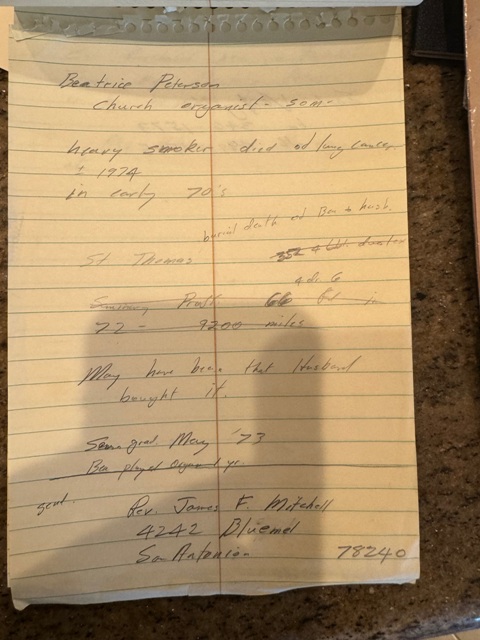 Beatrice Peterson
Church organist - som-
heavy smoker died of lung cancer
± 1974
in early 70's
burial death of Bea & husb.
St Thomas
Pratt 66
72 - 9200 miles
May have been that Husband
bought it.
Sem grad. May '73
Bea played organ 1 yr.
Rev. James F. Mitchell
4242 Bluemel
San Antonion 78240